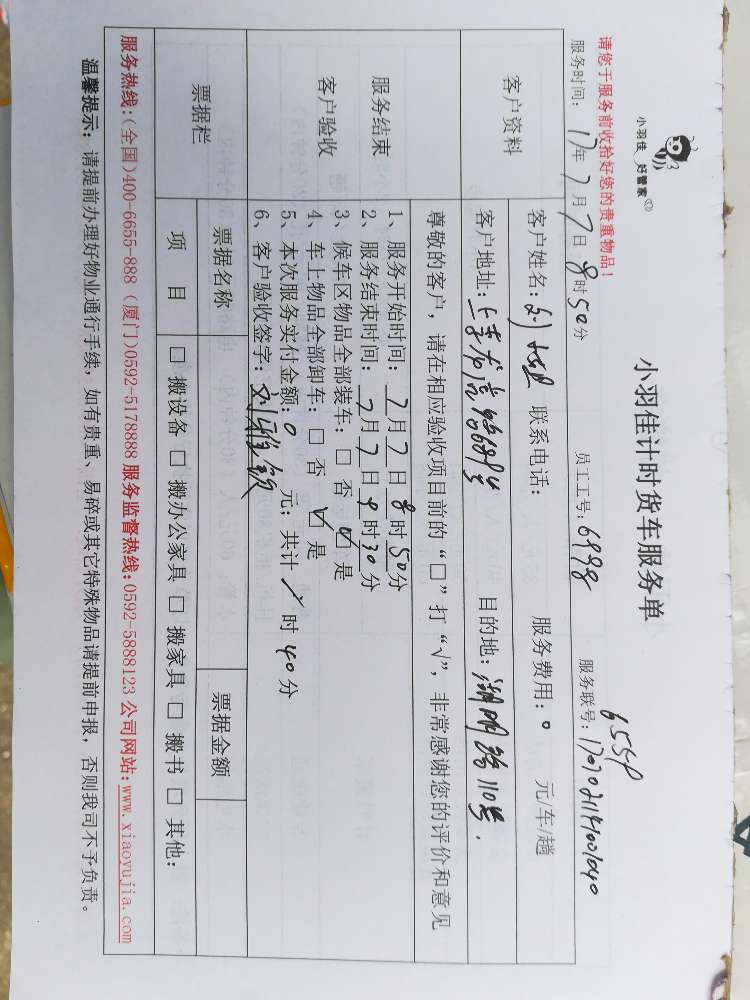 小羽佳 好管家
小羽佳计时货车服务单
6558
请您于服务前收拾好您的贵重物品！
服务时间：17年7月7日8时50分 员工工号：6998 服务联号：
客户资料
客户姓名：刘 联系电话： 服务费用：0 元/车/趟
客户地址： 目的地：湖明路110号.
服务结束
客户验收
尊敬的客户，请在相应验收项目前的“□”打“√”，非常感谢您的评价和意见
1、服务开始时间：7月7日8时50分
2、服务结束时间：7月7日9时30分
3、候车区物品全部装车：□ 否 ☑ 是
4、车上物品全部卸车：□ 否 ☑ 是
5、本次服务实付金额：0 元；共计 / 时 40 分
6、客户验收签字：
票据栏
票据名称 票据金额
项 目 □ 搬设备 □ 搬办公家具 □ 搬家具 □ 搬书 □ 其他：
服务热线：(全国)400-6655-888 (厦门)0592-5178888 服务监督热线：0592-5888123 公司网站：www.xiaoyujia.com
温馨提示：请提前办理好物业通行手续，如有贵重、易碎或其它特殊物品请提前申报，否则我司不予负责。